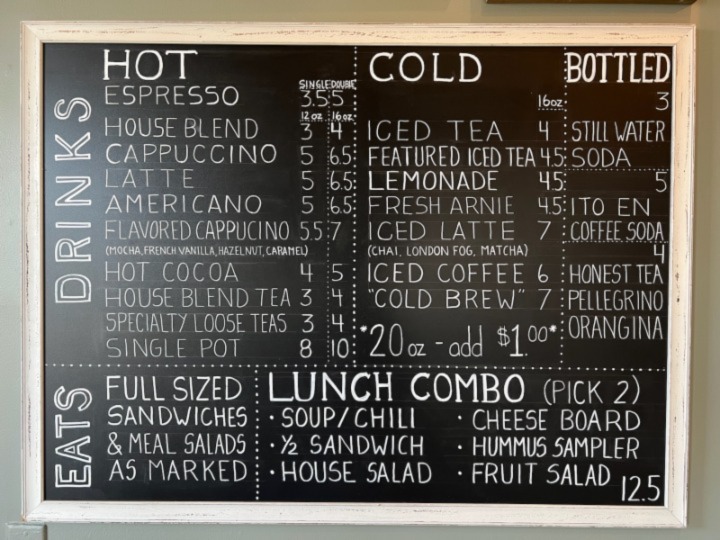 DRINKS
HOT
SINGLE DOUBLE
ESPRESSO 3.5 5
12 oz 16 oz
HOUSE BLEND 3 4
CAPPUCCINO 5 6.5
LATTE 5 6.5
AMERICANO 5 6.5
FLAVORED CAPPUCINO 5.5 7
(MOCHA, FRENCH VANILLA, HAZELNUT, CARAMEL)
HOT COCOA 4 5
HOUSE BLEND TEA 3 4
SPECIALTY LOOSE TEAS 3 4
SINGLE POT 8 10
COLD
16oz
ICED TEA 4
FEATURED ICED TEA 4.5
LEMONADE 4.5
FRESH ARNIE 4.5
ICED LATTE 7
(CHAI, LONDON FOG, MATCHA)
ICED COFFEE 6
"COLD BREW" 7
*20oz - add $1.00*
BOTTLED
3
STILL WATER
SODA
5
ITO EN
COFFEE SODA
4
HONEST TEA
PELLEGRINO
ORANGINA
EATS
FULL SIZED
SANDWICHES
& MEAL SALADS
AS MARKED
LUNCH COMBO (PICK 2)
· SOUP/CHILI · CHEESE BOARD
· ½ SANDWICH · HUMMUS SAMPLER
· HOUSE SALAD · FRUIT SALAD
12.5